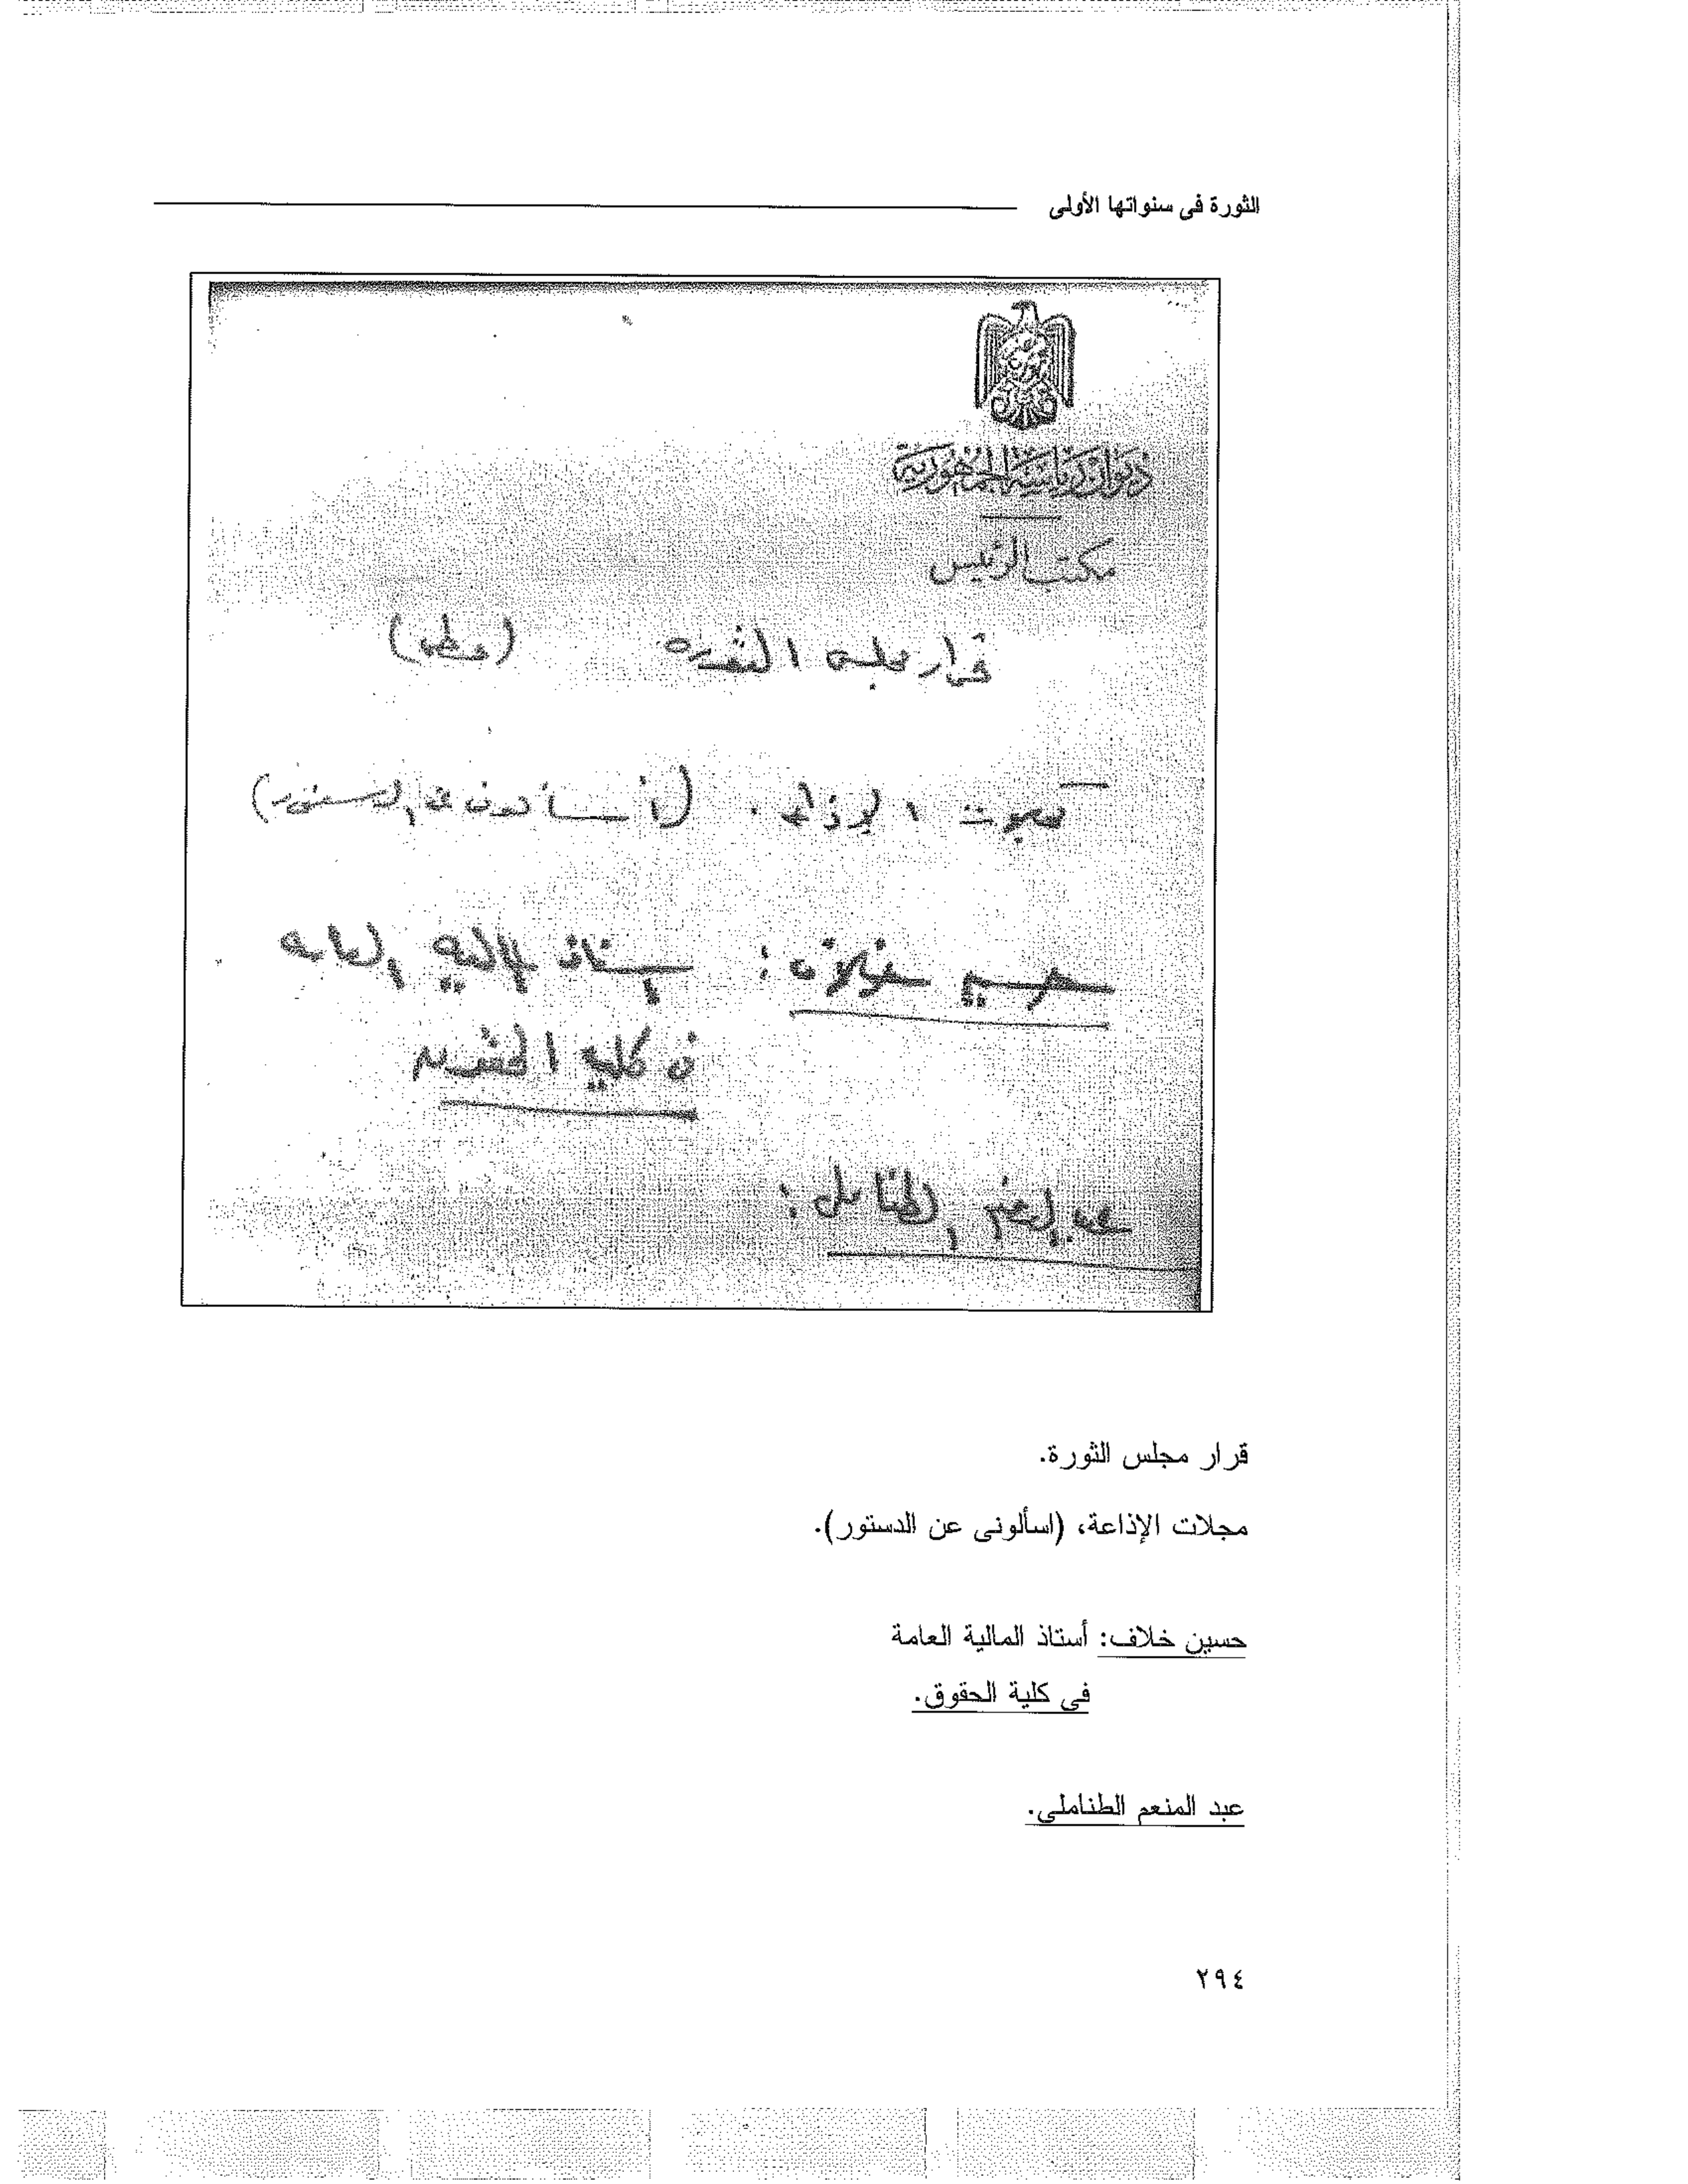 الثورة فى سنواتها الأولى
ديوان رياسة الجمهورية
مكتب الرئيس
قرار مجلس الثورة
مجلات الإذاعة . (اسألونى عن الدستور)
حسين خلاف : أستاذ المالية العامة
فى كلية الحقوق
عبد المنعم الطناملى :
قرار مجلس الثورة.
مجلات الإذاعة، (اسألونى عن الدستور).
حسين خلاف: أستاذ المالية العامة
فى كلية الحقوق.
عبد المنعم الطناملى.
٢٩٤